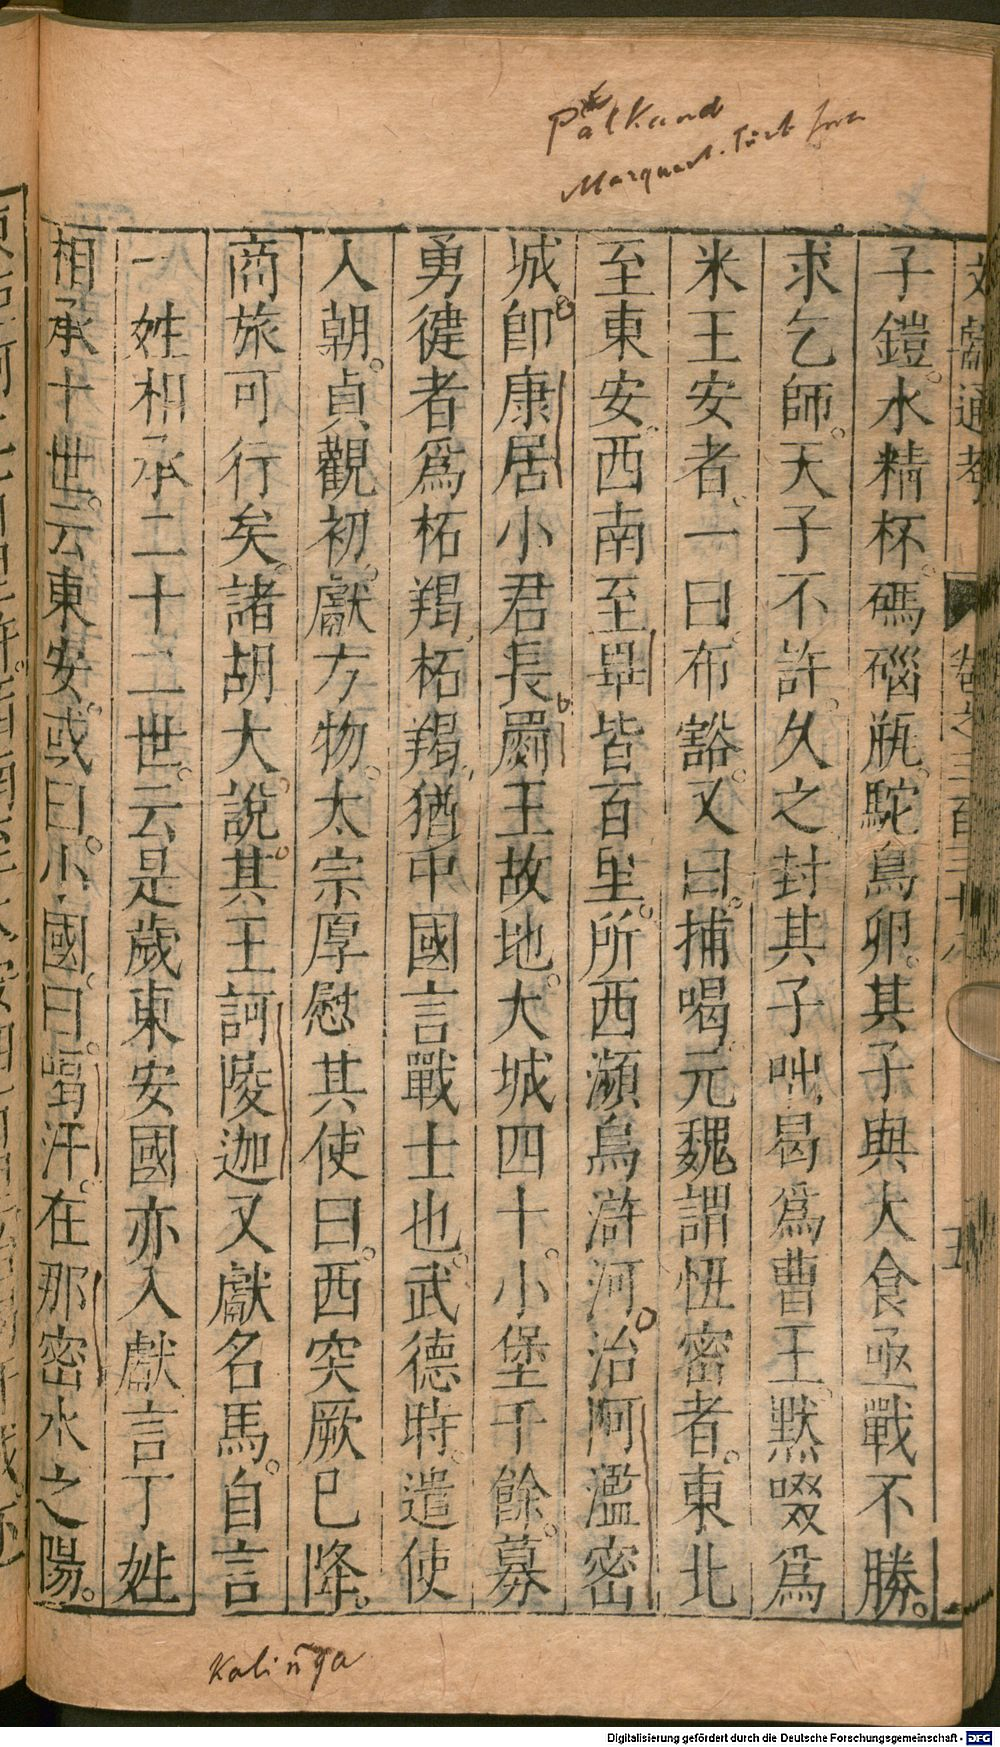 Pätkand
Marquart. Türk
文獻通考 卷之三百三十八 五
子鎧水精杯碼碯瓶駝鳥卵其子與大食亟戰不勝
求乞師天子不許久之封其子咄曷爲曹王默啜爲
米王安者一曰布豁又曰捕喝元魏謂忸密者東北
至東安西南至畢皆百里所西瀕烏滸河治阿濫密
城卽康居小君長罽王故地大城四十小堡千餘募
勇健者爲柘羯柘羯猶中國言戰士也武德時遣使
入朝貞觀初獻方物太宗厚慰其使曰西突厥巳降
商旅可行矣諸胡大說其王訶陵迦又獻名馬自言
一姓相承二十二世云是歲東安國亦入獻言丁姓
相承十世云東安或曰小國曰喝汗在那密水之陽
Kaliñga
Digitalisierung gefördert durch die Deutsche Forschungsgemeinschaft - DFG